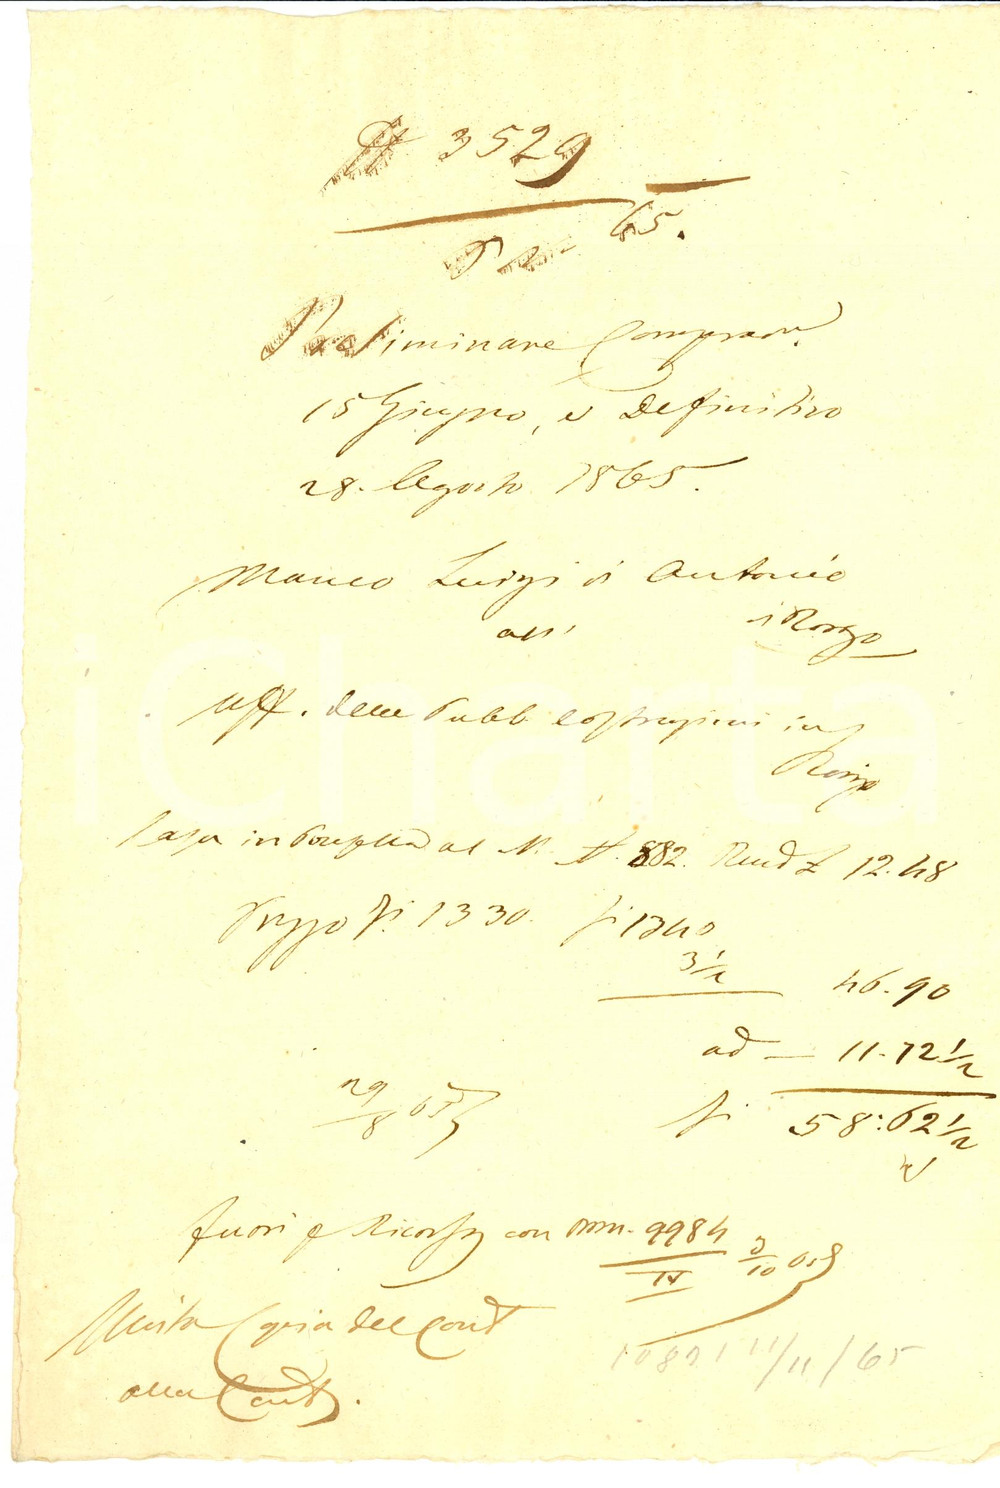 3529
65.
Preliminare Comprav.
15 Giugno, e Definitivo
28. Agosto 1865.
Maneo Luigi di Antonio
all'
Uff. delle Pubb. Costruzioni in
Rovigo
Casa in al N. 882. Rend £ 12.48
Prezzo fi. 1330. fi 1340
3 1/2 46.90
ad — 11.72 1/2
29/8 65 fi 58:62 1/2
fuori con 9984
IV 3/10 65
Unita Copia del Cont
alla
10821 11/11/65
iCharta